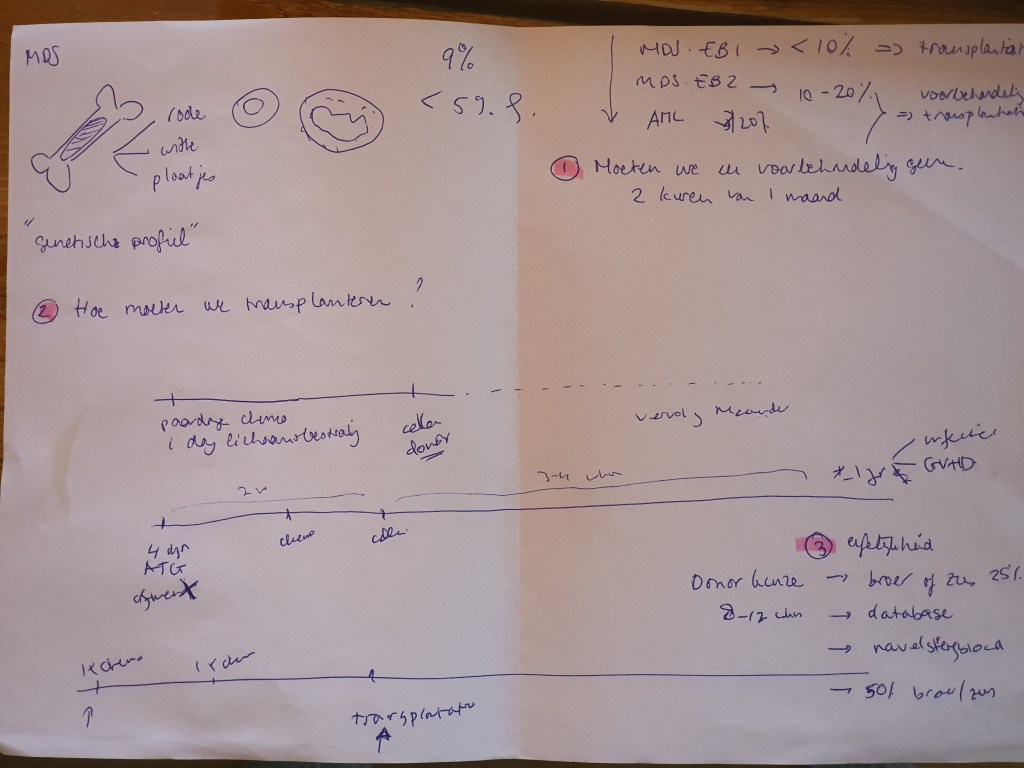 MDS
rode
witte
plaatjes
"genetische profiel"
9%
< 5%
MDS-EB1 → < 10% => transplantat
MDS-EB2 → 10-20%
AML → 20%
voorbehandelig
=> transplantatie
1 Moeten we een voorbehandelig geven.
2 kuren van 1 maand
2 Hoe moeten we transplanteren?
paar dag chemo
1 dag lichaamsbestraling
cellen
donor
vervolg maanden
2 w
3-4 wkn
1 jr
infectie
GVHD
4 dgn
ATG
chemo
cellen
3
Donor keuze → broer of zus 25%
8-12 wkn → database
→ navelstrengbloed
→ 50% broer/zus
1x chemo
1x chemo
transplantatie